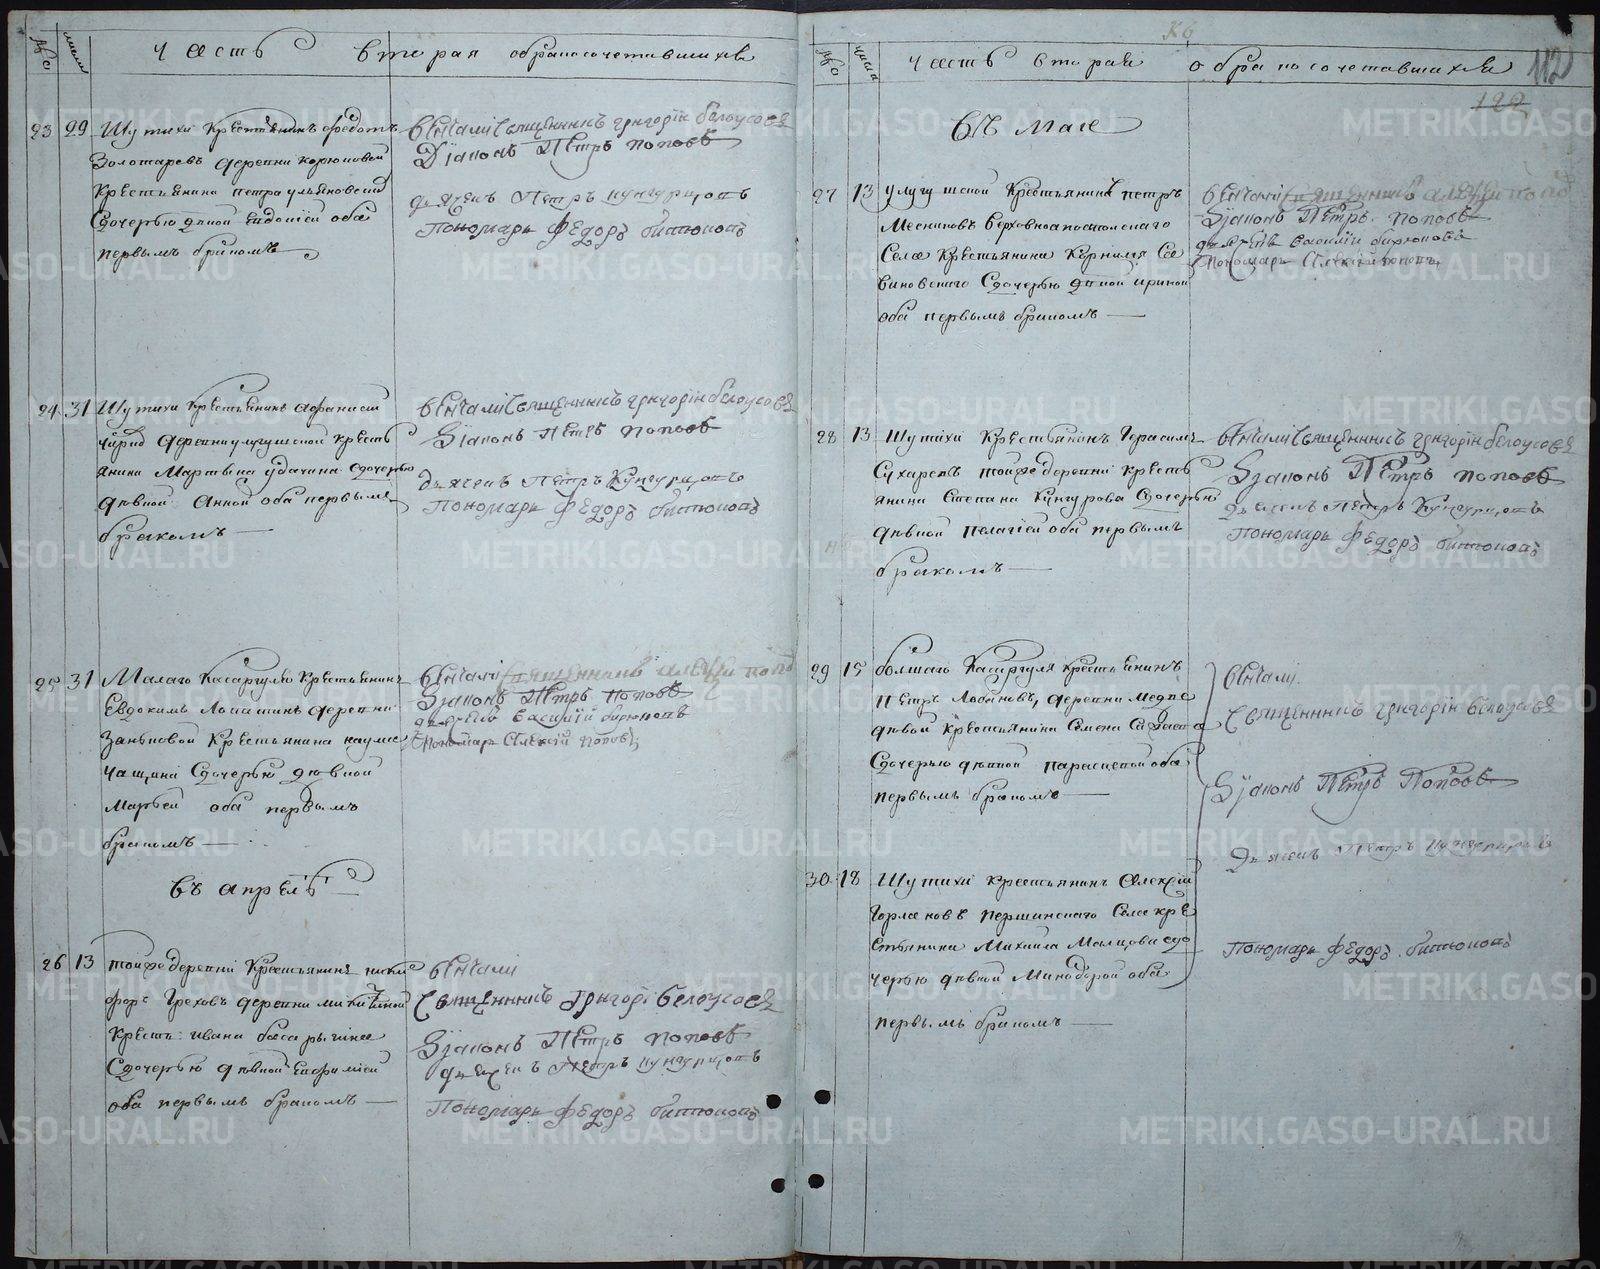 №
число
Часть вторая о бракосочетавшихся
23 29 Шутихи крестьянинъ Федотъ
Золотаревъ деревни
крестьянина Петра Ульяновской
Сдочерью дѣвкой Евдокіей оба
первымъ бракомъ
Вѣнчали Священникъ Григорій Белоусовъ
Діаконъ Петръ Поповъ
дьячекъ Петръ Кунгурцовъ
Пономарь Федоръ Битюковъ
24 31 Шутихи крестьянинъ Афанасій
деревни улугушской кресть
янина Мартына Удачина Сдочерью
дѣвкой Анной оба первымъ
бракомъ
Вѣнчали Священникъ Григорій Белоусовъ
Діаконъ Петръ Поповъ
дьячекъ Петръ Кунгурцовъ
Пономарь Федоръ Битюковъ
25 31 Малаго Касаргулю крестьянинъ
Евдокимъ Лопатинъ деревни
Заньковой Крестьянина Наума
Сдочерью дѣвкой
Марѳей оба первымъ
бракомъ
Вѣнчали Священникъ Алексѣй Поповъ
Діаконъ Петръ Поповъ
дьячекъ Василій Бирюковъ
Пономарь Алексій Поповъ
въ апрелѣ
26 13 тойже деревни Крестьянинъ Ники
форъ Греховъ деревни Микитиной
Кресть: Ивана
Сдочерью дѣвкой Евфиміей
оба первымъ бракомъ
вѣнчали
Священникъ Григорій Белоусовъ
Діаконъ Петръ Поповъ
дьячекъ Петръ Кунгурцовъ
Пономарь Федоръ Битюковъ
№
числа
Часть вторая о бракосочетавшихся 112
122
Въ Маіе
27 13 улугушской Крестьянинъ Петръ
Месниковъ Верховноапостольскаго
Села Крестьянина Корнилія Са
виновскаго Сдочерью дѣвкой Ириной
оба первымъ бракомъ
Вѣнчали Священникъ Алексѣй Поповъ
Діаконъ Петръ Поповъ
дьячекъ Василій Бирюковъ
Пономарь Алексій Поповъ
28 13 Шутихи Крестьянинъ Герасимъ
Сухаревъ тойже деревни кресть
янина Степана Кунгурова Сдочерью
дѣвкой Пелагіей оба первымъ
бракомъ
Вѣнчали Священникъ Григорій Белоусовъ
Діаконъ Петръ Поповъ
дьячекъ Петръ Кунгурцовъ
Пономарь Федоръ Битюковъ
29 15 большаго Касаргуля крестьянинъ
Петръ Лобановъ, деревни Медве
дѣвой крестьянина Семена
Сдочерью дѣвкой Параскевой оба
первымъ бракомъ
30 18 Шутихи крестьянинъ Алексій
Горлановъ Першинскаго Села кре
стьянина Михаила Малцова сдо
черью дѣвкой Минодорой оба
первымъ бракомъ
Вѣнчали
Священникъ Григорій Белоусовъ
Діаконъ Петръ Поповъ
дьячекъ Петръ Кунгурцовъ
Пономарь Федоръ Битюковъ
METRIKI.GASO-URAL.RU